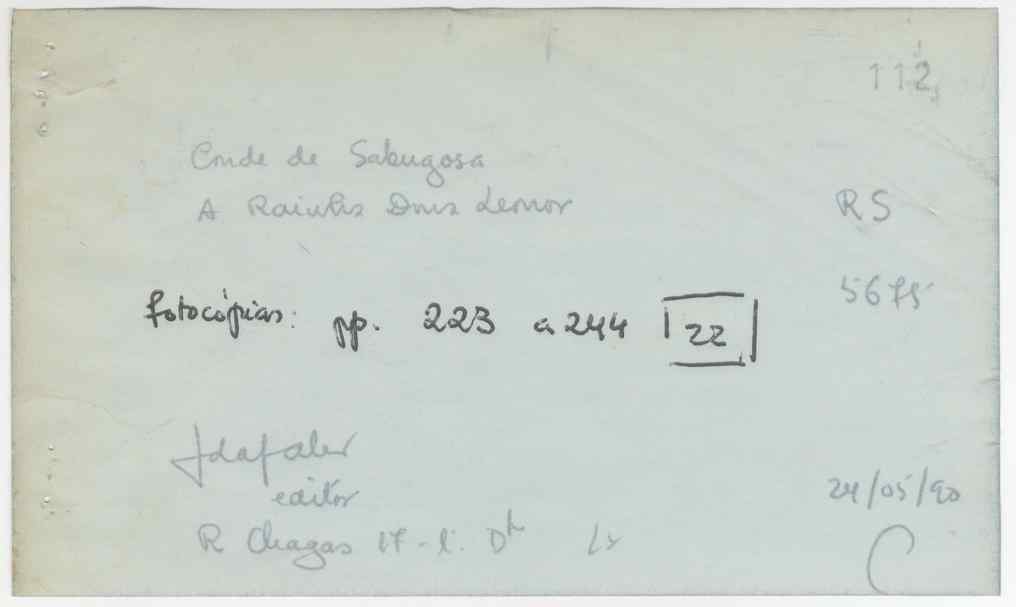 112
Conde de Sabugosa
A Rainha Dona Leonor
RS
5675
fotocópias: pp. 223 a 244 22
editor
24/05/90
R Chagas 17-1º Dto Lx